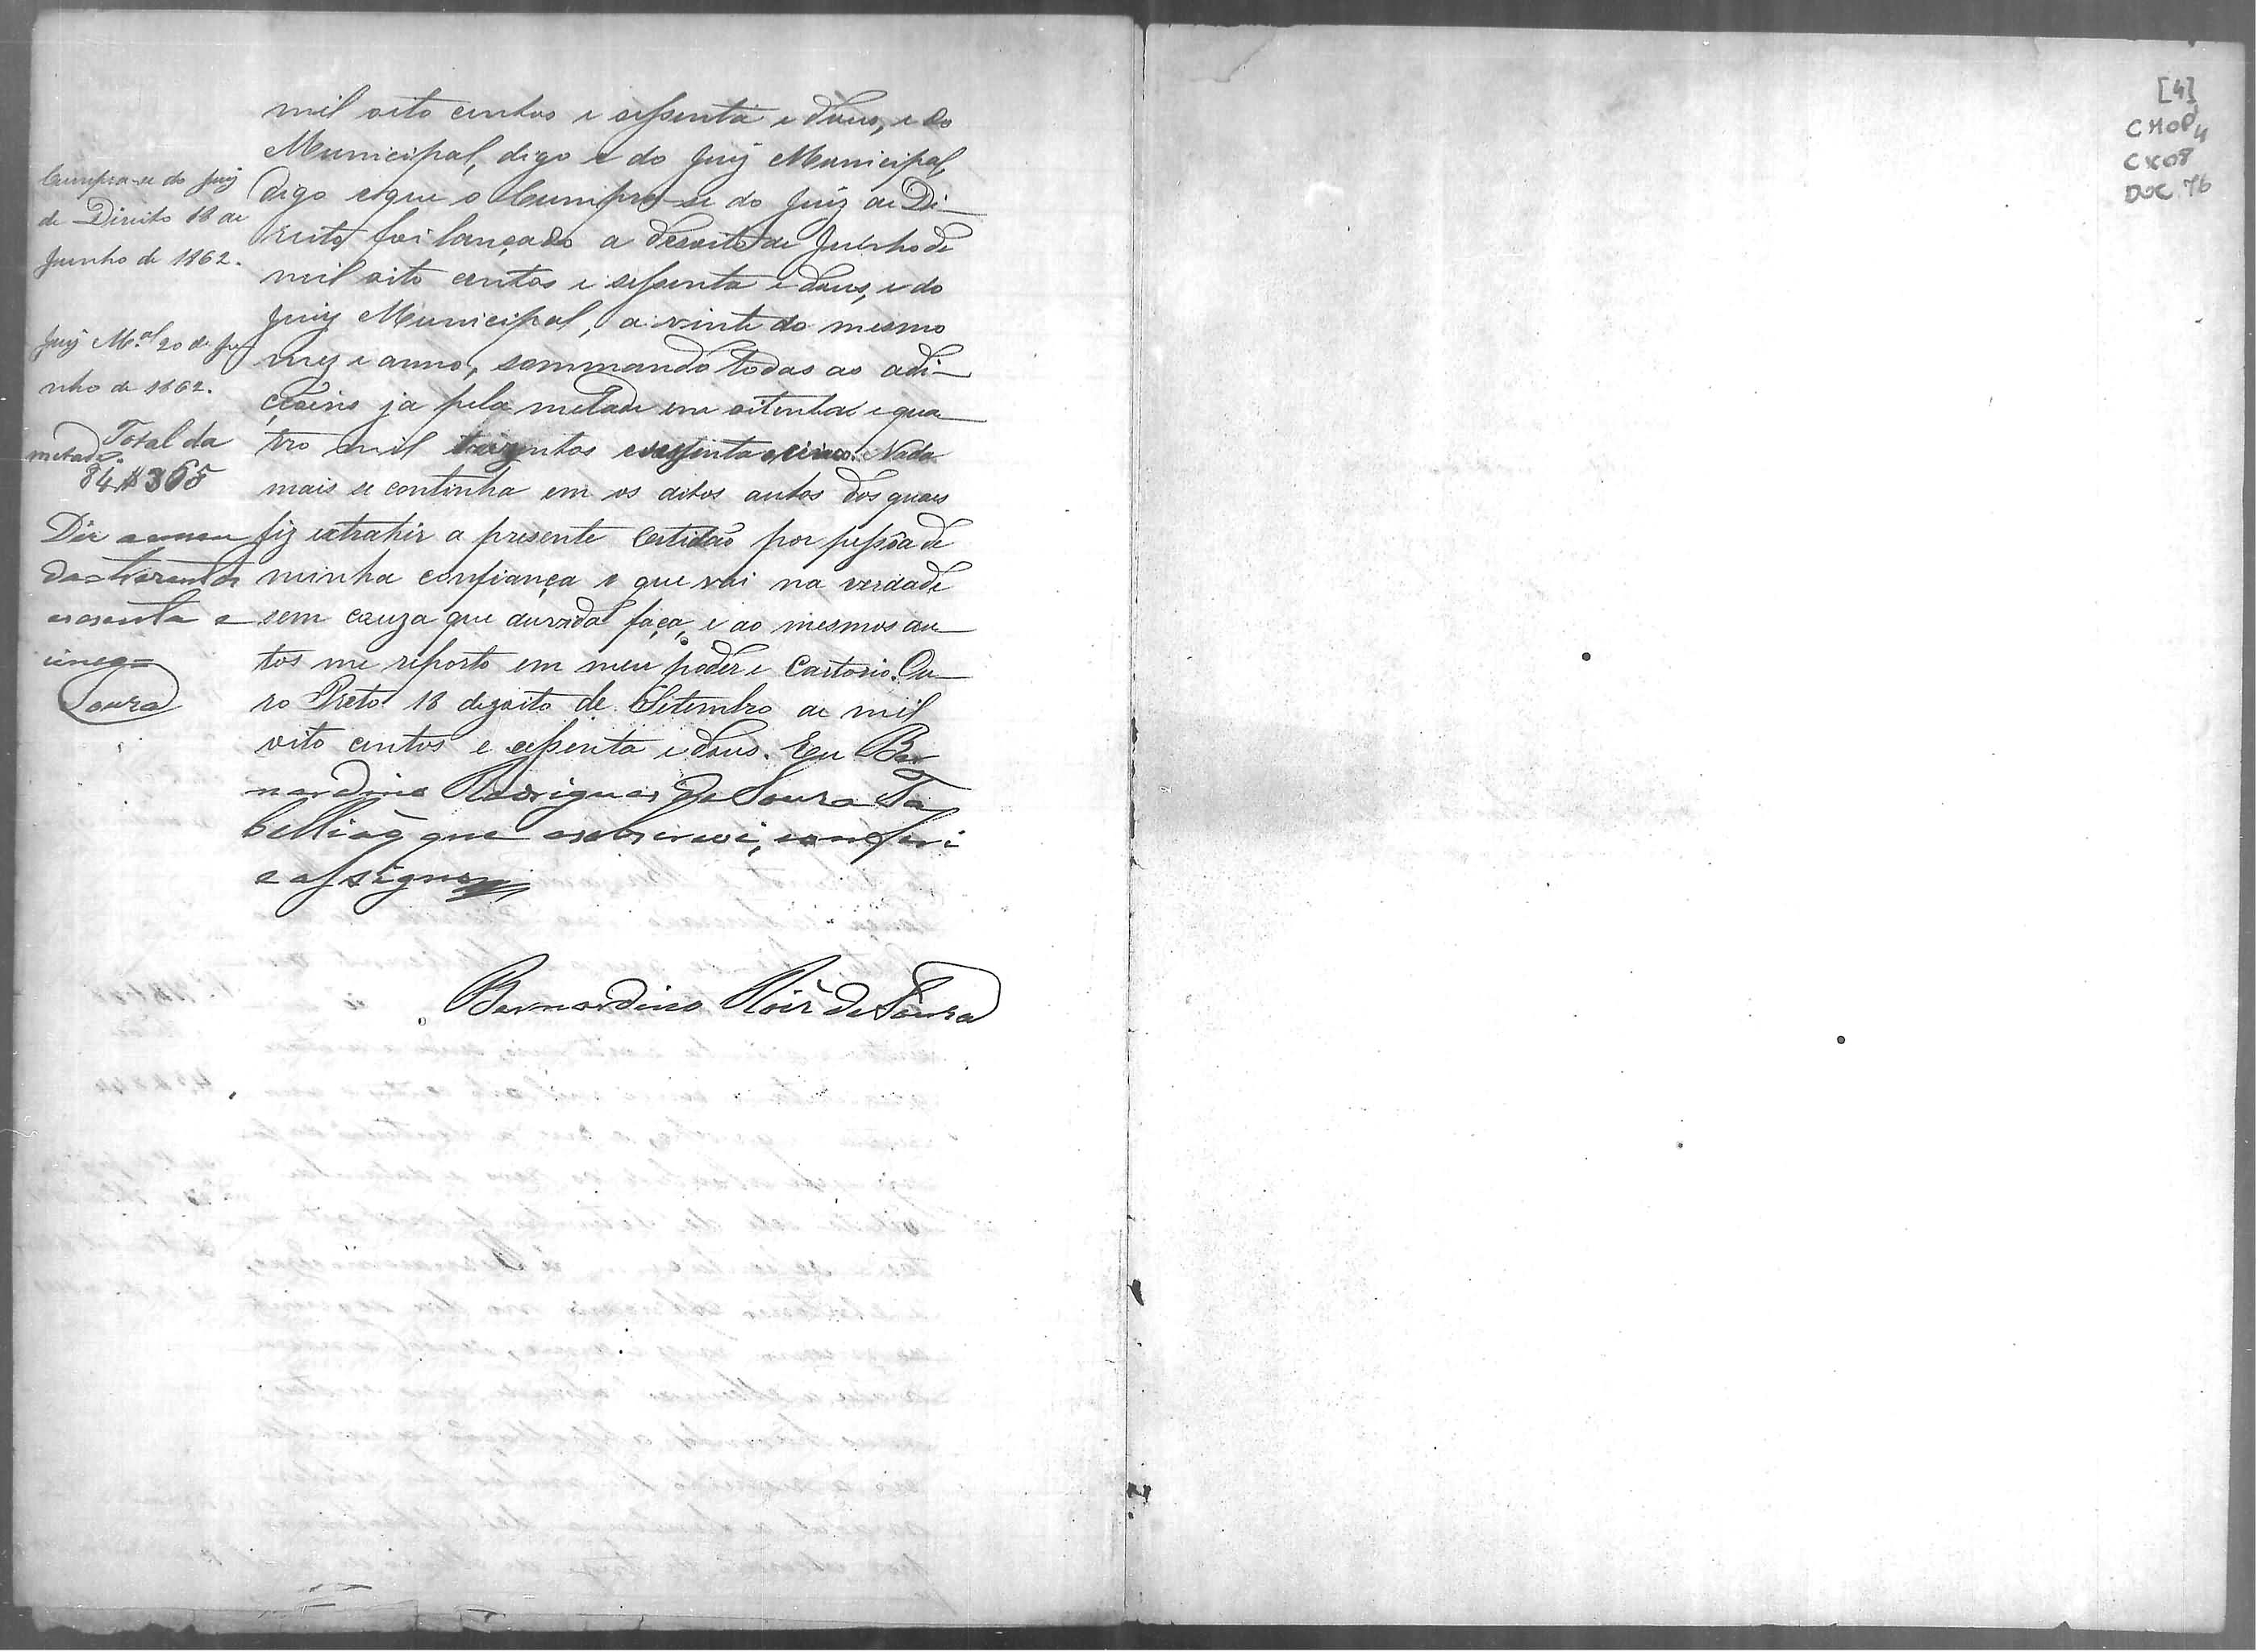 mil oito centos e sessenta e dous, e do
Municipal, digo e do Juiz Municipal,
digo e que o Cumpra-se do Juiz de Di-
reito foi lançado a desoito de Junho de
mil oito centos e sessenta e dous, e do
Juiz Municipal, a vinte do mesmo
mez e anno, sommando todas as adi-
çoens ja pela metade em oitenta e qua-
tro mil trezentos e sessenta e cinco. Nada
mais se continha em os ditos autos dos quaes
fiz extrahir a presente Certidão por pessôa de
minha confiança e que vai na verdade
sem cauza que duvida faça, e ao mesmos au-
tos me reporto em meu poder e Cartorio. Ou-
ro Preto 18 dezoito de Setembro de mil
oito centos e sessenta e dous. Eu Ber
nardino Rodrigues de Souza Ta
bellião que osobscrevi, conferi
e assigno
Bernardino Roiz de Souza
Cumpra-se do Juiz
de Direito 18 de
Junho de 1862.
Juiz M.al 20 de Ju
nho de 1862.
Total da
metade
84$365
Diz a emen
da trezentos
esesenta e
cinco
Souza
[4]
CMOP
CX08
DOC 76